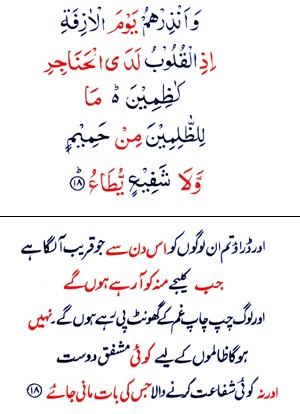 وَاَنْذِرْهُمْ يَوْمَ الْاٰزِفَةِ
اِذِ الْقُلُوْبُ لَدَى الْحَنَاجِرِ
كٰظِمِيْنَ ۬ؕ مَا
لِلظّٰلِمِيْنَ مِنْ حَمِيْمٍ
وَّلَا شَفِيْعٍ يُّطَاعُ ؕ۝۱۸
اور ڈراؤ تم ان لوگوں کو اس دن سے جو قریب آ لگا ہے
جب کلیجے منہ کو آ رہے ہوں گے
اور لوگ چپ چاپ غم کے گھونٹ پی رہے ہوں گے۔ نہیں
ہو گا ظالموں کے لیے کوئی مشفق دوست
اور نہ کوئی شفاعت کرنے والا جس کی بات مانی جائے ۝۱۸